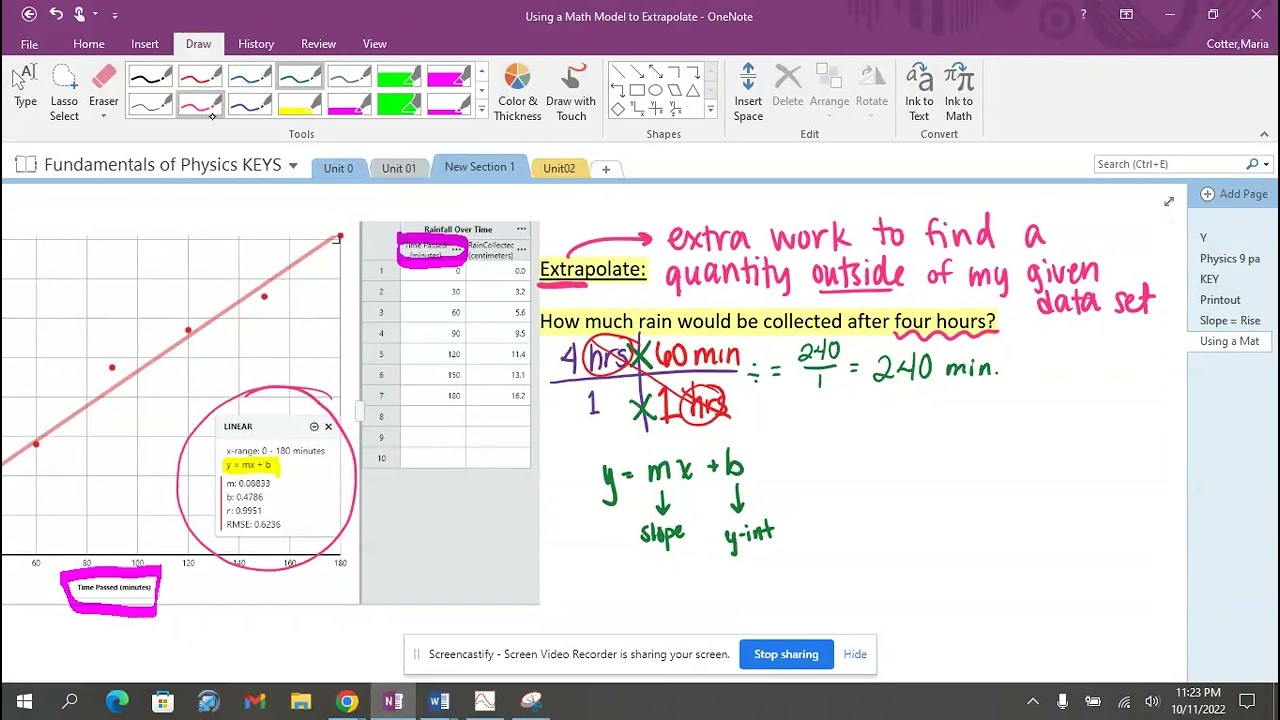 Using a Math Model to Extrapolate - OneNote
?
File Home Insert Draw History Review View
Cotter,Maria
Type
Lasso Select
Eraser
Color & Thickness
Draw with Touch
Insert Space
Delete
Arrange
Rotate
Ink to Text
Ink to Math
Tools
Shapes
Edit
Convert
Fundamentals of Physics KEYS
Unit 0
Unit 01
New Section 1
Unit02
Search (Ctrl+E)
Add Page
Y
Physics 9 pa
KEY
Printout
Slope = Rise
Using a Mat
LINEAR
x-range: 0 - 180 minutes
y = mx + b
m: 0.08833
b: 0.4786
r: 0.9951
RMSE: 0.6236
60 80 100 120 140 160 180
Time Passed (minutes)
Rainfall Over Time
Time Passed (minutes)
RainCollectec (centimeters)
1 0 0.0
2 30 3.2
3 60 5.6
4 90 9.5
5 120 11.4
6 150 13.1
7 180 16.2
8
9
10
extra work to find a
Extrapolate: quantity outside of my given
data set
How much rain would be collected after four hours?
4 hrs X 60 min
1 X 1 hrs
÷ = 240/1 = 240 min.
y = mx + b
slope y-int
Screencastify - Screen Video Recorder is sharing your screen.
Stop sharing
Hide
11:23 PM
10/11/2022